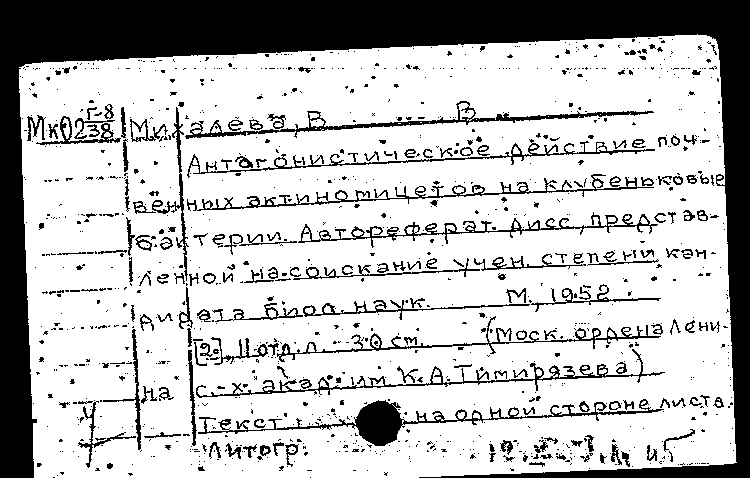 МкО2 Г-8/38 Михалева, В В
Антагонистическое действие поч-
венных актиномицетов на клубеньковые
бактерии. Автореферат дисс., представ-
ленной на соискание учен. степени кан-
дидата биол. наук. М., 1952.
[2], 11 отд. л. 30 см. (Моск. ордена Лени-
на с.-х. акад. им К. А. Тимирязева)
Текст на одной стороне листа.
Литогр.